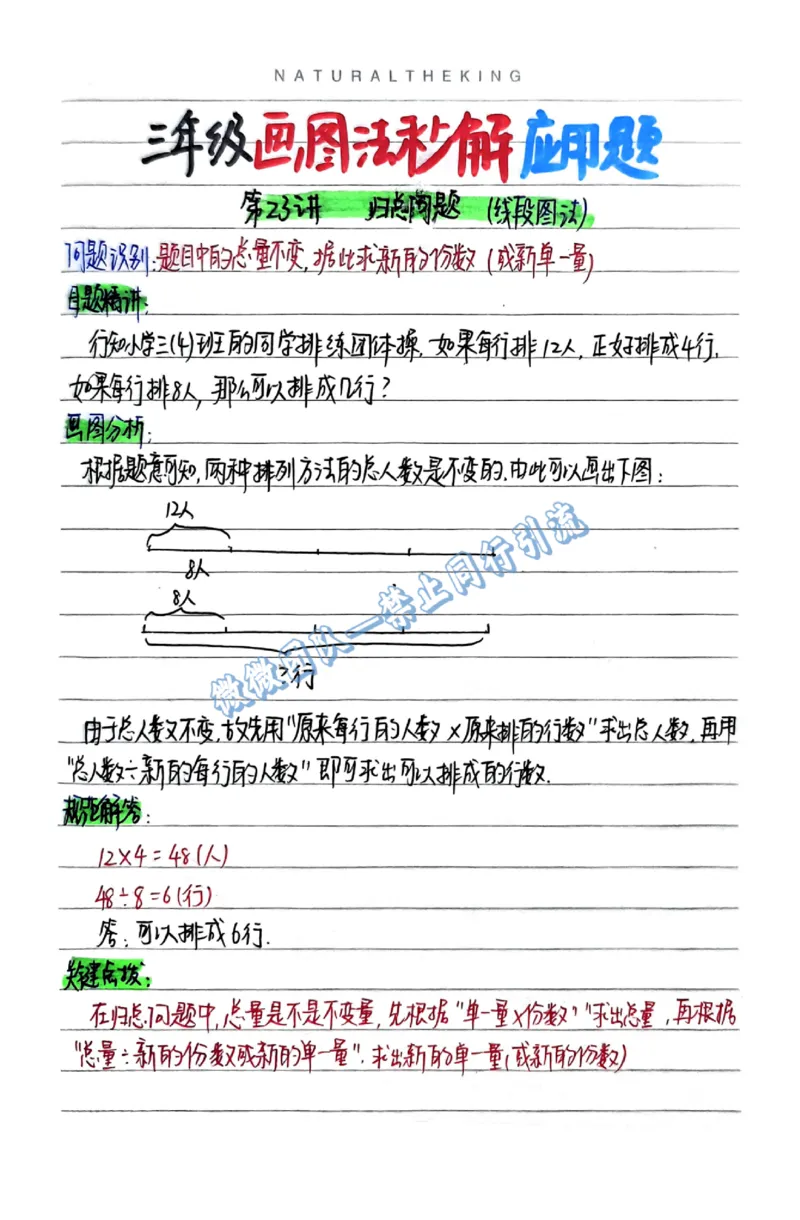 NATURALTHEKING
三年级画图法秒解应用题
第23讲 归总问题 (线段图法)
问题识别:题目中的总量不变,据此求新的份数(或新单一量)
例题精讲:
行知小学三(4)班的同学排练团体操,如果每行排12人,正好排成4行.
如果每行排8人,那么可以排成几行?
画图分析:
根据题意可知,两种排列方法的总人数是不变的.由此可以画出下图:
12人
8人
8人
?行
微微团队一禁止同行引流
由于总人数不变,故先用"原来每行的人数×原来排的行数"求出总人数,再用
"总人数÷新的每行的人数"即可求出可以排成的行数.
规范解答:
12×4=48(人)
48÷8=6(行)
答:可以排成6行.
关键点拨:
在归总问题中,总量是不是不变量,先根据"单一量×份数""求出总量,再根据
"总量÷新的份数或新的单一量".求出新的单一量(或新的份数)